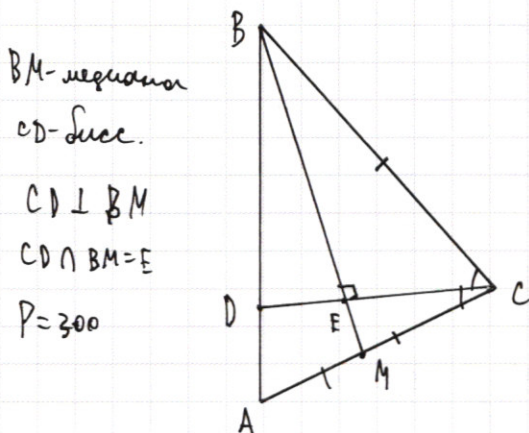 BM-медиана
CD-бисс.
CD ⊥ BM
CD ∩ BM = E
P = 300
B
D
E
C
M
A